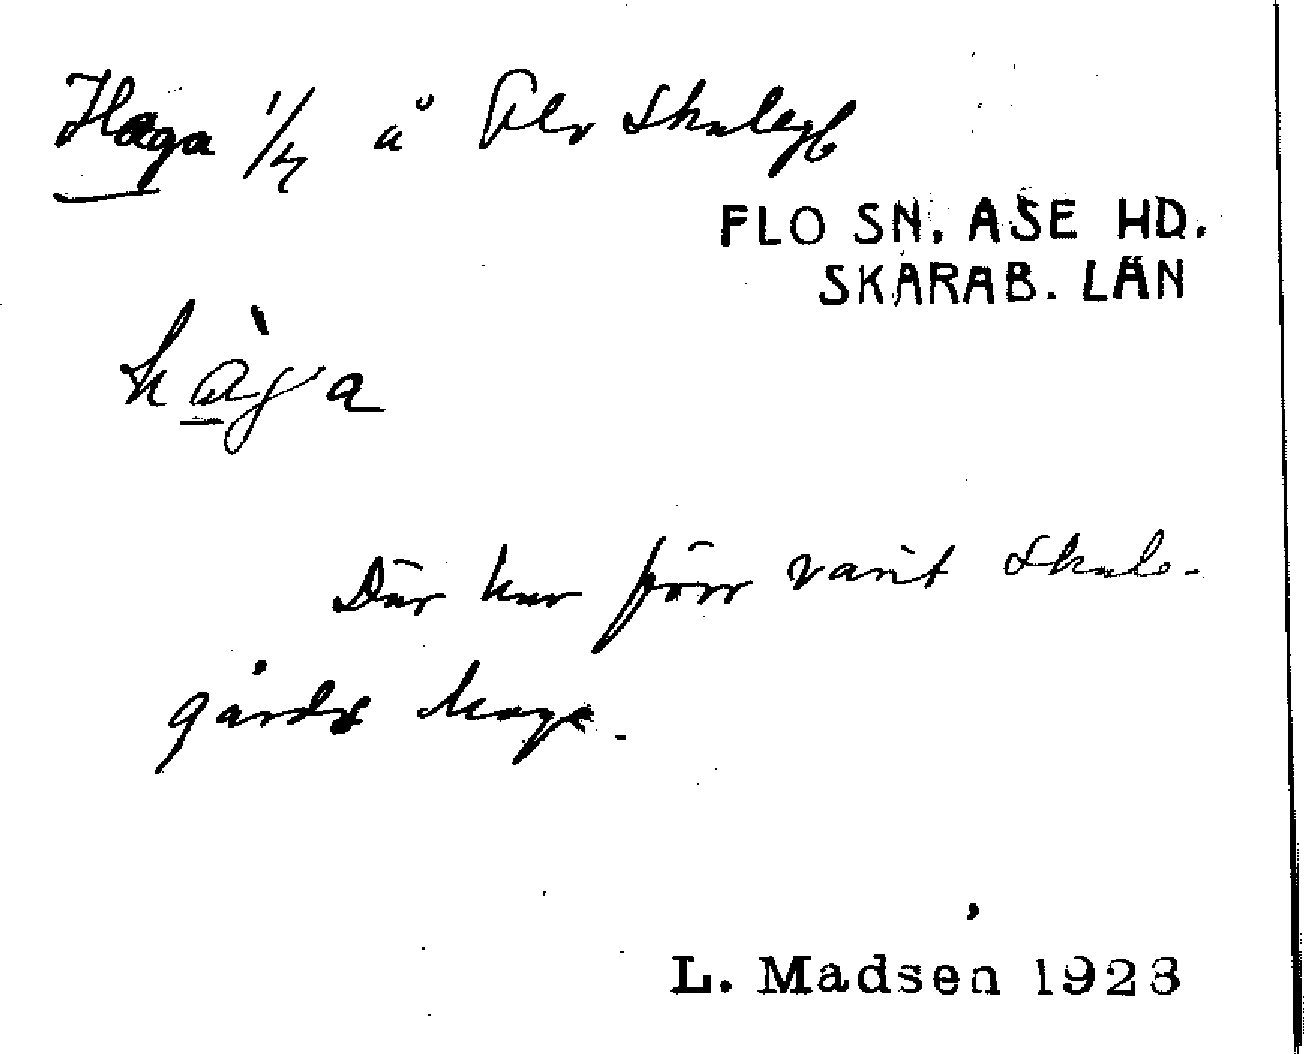 Haga 1/4 å Flo Skalegb
FLO SN. ÅSE HD.
SKARAB. LÄN
hàga
Där har förr varit Skale-
gårds haga.
L. Madsen 1928